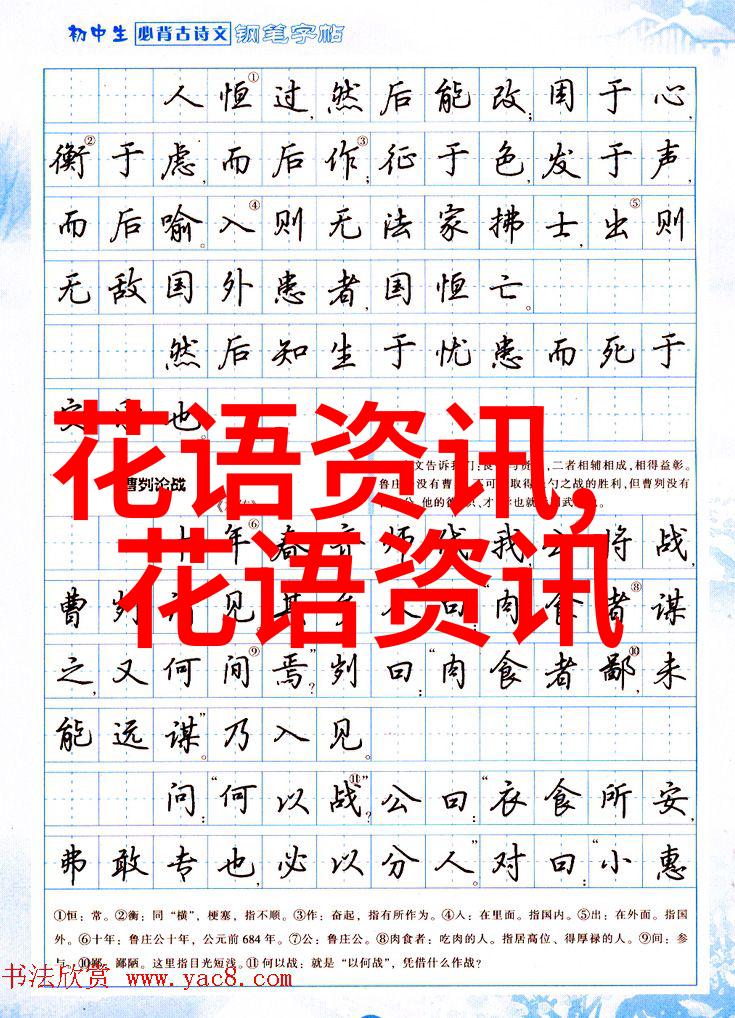 初中生 必背古诗文 钢笔字帖
人恒①过,然后能改;困于心,
衡②于虑,而后作③;征于色,发于声,
而后喻。入④则无法家拂士,出⑤则
无敌国外患者,国恒亡。
然后知生于忧患而死于
也。
花语资讯,
文告诉我们: 二者相辅相成,相得益彰。
曹刿论战
鲁庄 没有曹 不可 取得 勺之战的胜利,但曹刿没有
他的 才 也就 武
年⑥春 师伐我 将战,
花语资讯
曹刿 见其 人曰:“肉食者⑧谋
之,又何间⑨焉?”刿曰:“肉食者鄙⑩,未
能远谋。”乃入见。
问:“何以战⑪?”公曰:“衣食所安,
弗敢专也,必以分人。”对曰:“小惠
①恒:常。②衡:同“横”,梗塞,指不顺。③作:奋起,指有所作为。④入:在里面。指国内。⑤出:在外面。指国
外。⑥十年:鲁庄公十年,公元前684年。⑦公:鲁庄公。⑧肉食者:吃肉的人。指居高位、得厚禄的人。⑨间:参
与。⑩鄙:鄙陋。这里指目光短浅。⑪何以战:就是“以何战”,凭借什么作战?
书法欣赏 www.yac8.com